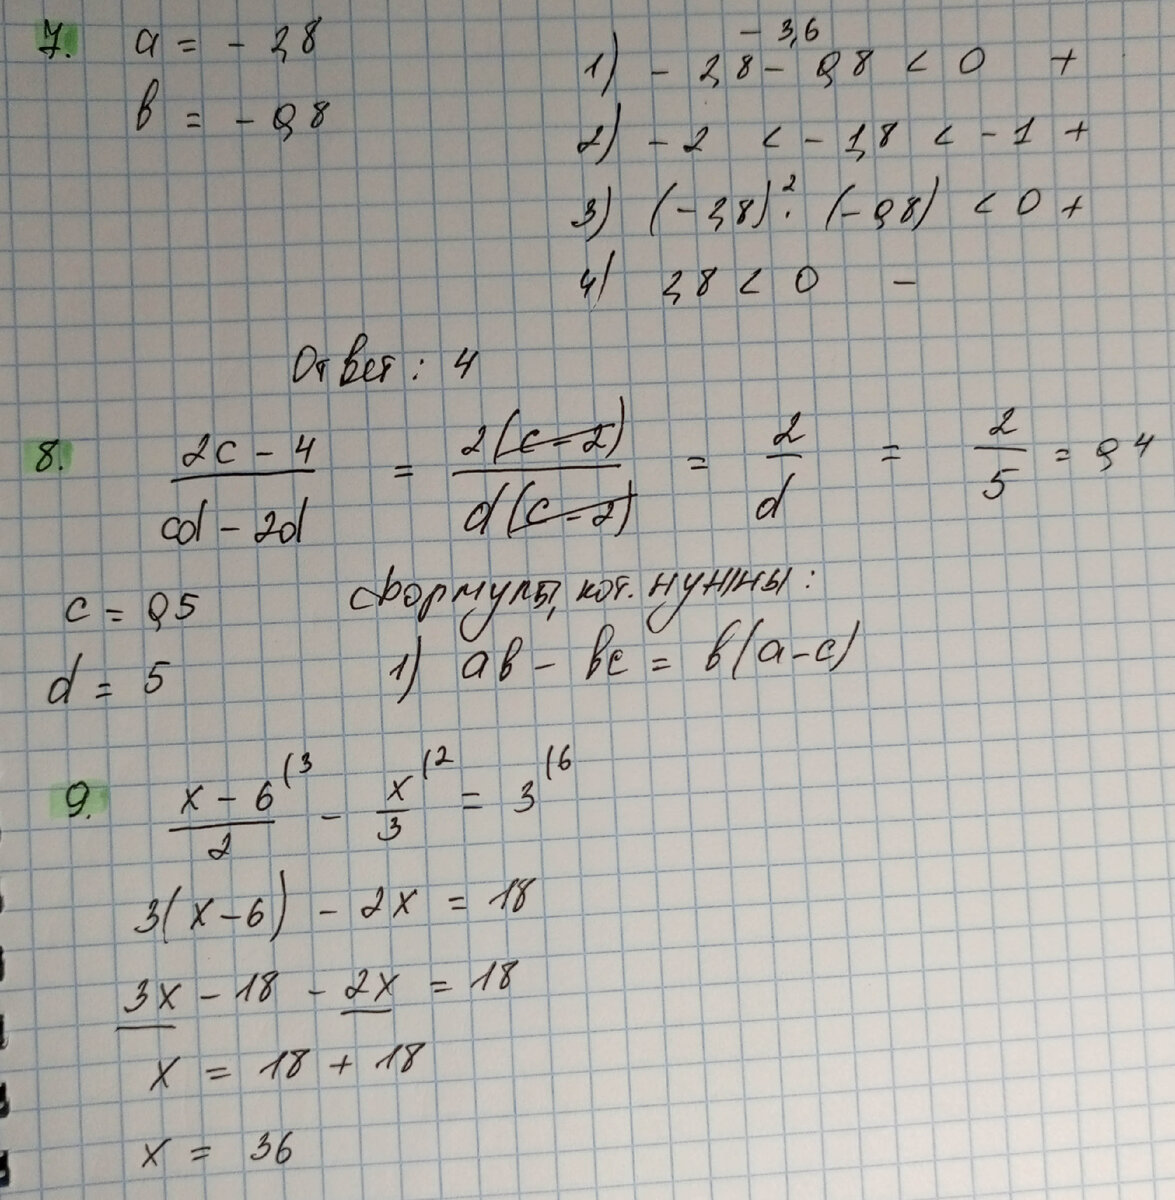 7. a = - 2,8
в = - 0,8
- 3,6
1) - 2,8 - 0,8 < 0 +
2) - 2 < - 1,8 < - 1 +
3) (- 2,8)² · (- 0,8) < 0 +
4) 2,8 < 0 -
Ответ: 4
8. (2c - 4)/(cd - 2d) = 2(c - 2)/d(c - 2) = 2/d = 2/5 = 0,4
c = 0,5
d = 5
формулы, кот. нужны:
1) aв - вc = в(a - c)
9. (x - 6)/2 (3 - x/3 (2 = 3 (6
3(x - 6) - 2x = 18
3x - 18 - 2x = 18
x = 18 + 18
x = 36